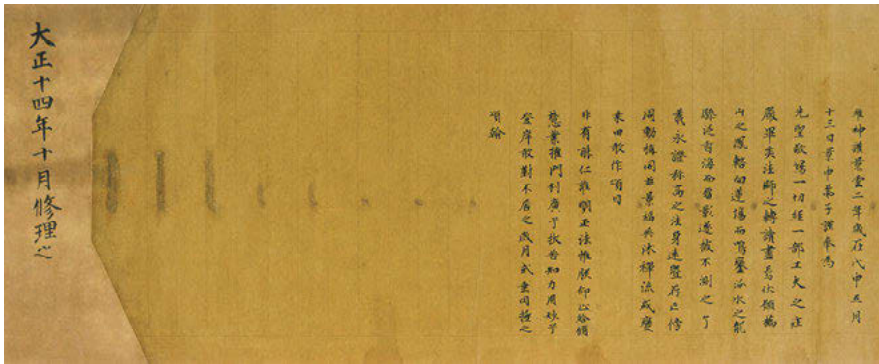 維神護景雲二年歳在戊申五月
十三日景申弟子謹奉為
先聖敬寫一切經一部工夫之荘
嚴畢矣法師之轉讀盡焉伏願橋
山之鳳輅向蓮場而鳴鑾汾水之龍
驂泛香海而留影遂披不測之了
義永證弥高之法身遠曁存亡傍
周動植同茲景福共沐禪流或變
桒田敢作頌曰
非有能仁誰明正法惟朕仰止給修
慧業權門利廣兮拔苦知力用妙兮
登岸敢對不居之歳月式垂罔極之
頌翰
大正十四年十月修理之